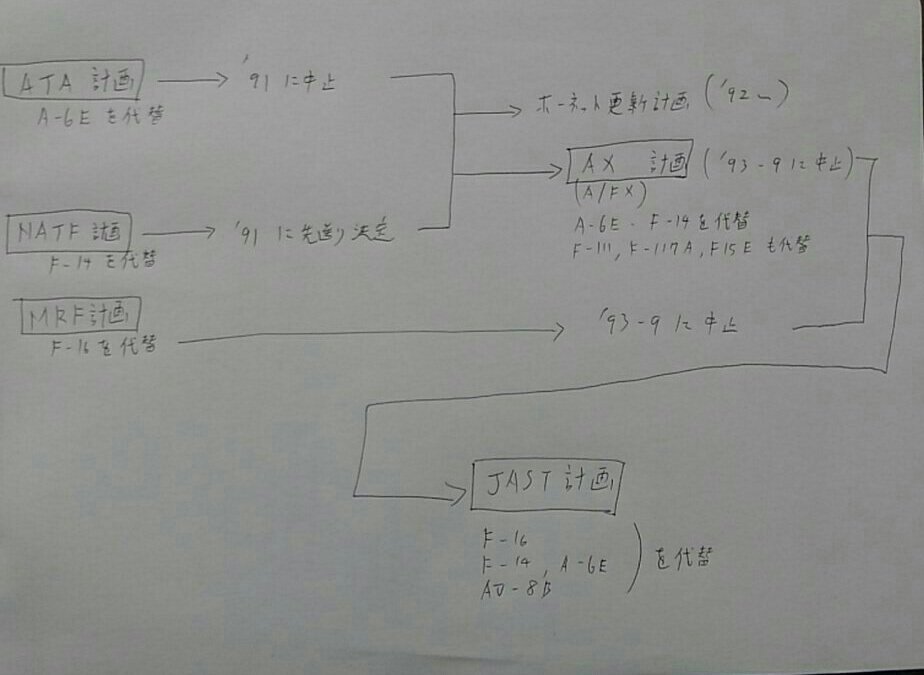 ATA 計画
'91 に中止
A-6E を代替
ホーネット更新計画 ('92〜)
AX 計画 ('93-9 に中止)
(A/FX)
A-6E・F-14を代替
F-111, F-117A, F15E も代替
NATF 計画
'91 に先送り決定
F-14 を代替
MRF計画
'93-9 に中止
F-16を代替
JAST 計画
F-16
F-14, A-6E
AV-8B
を代替